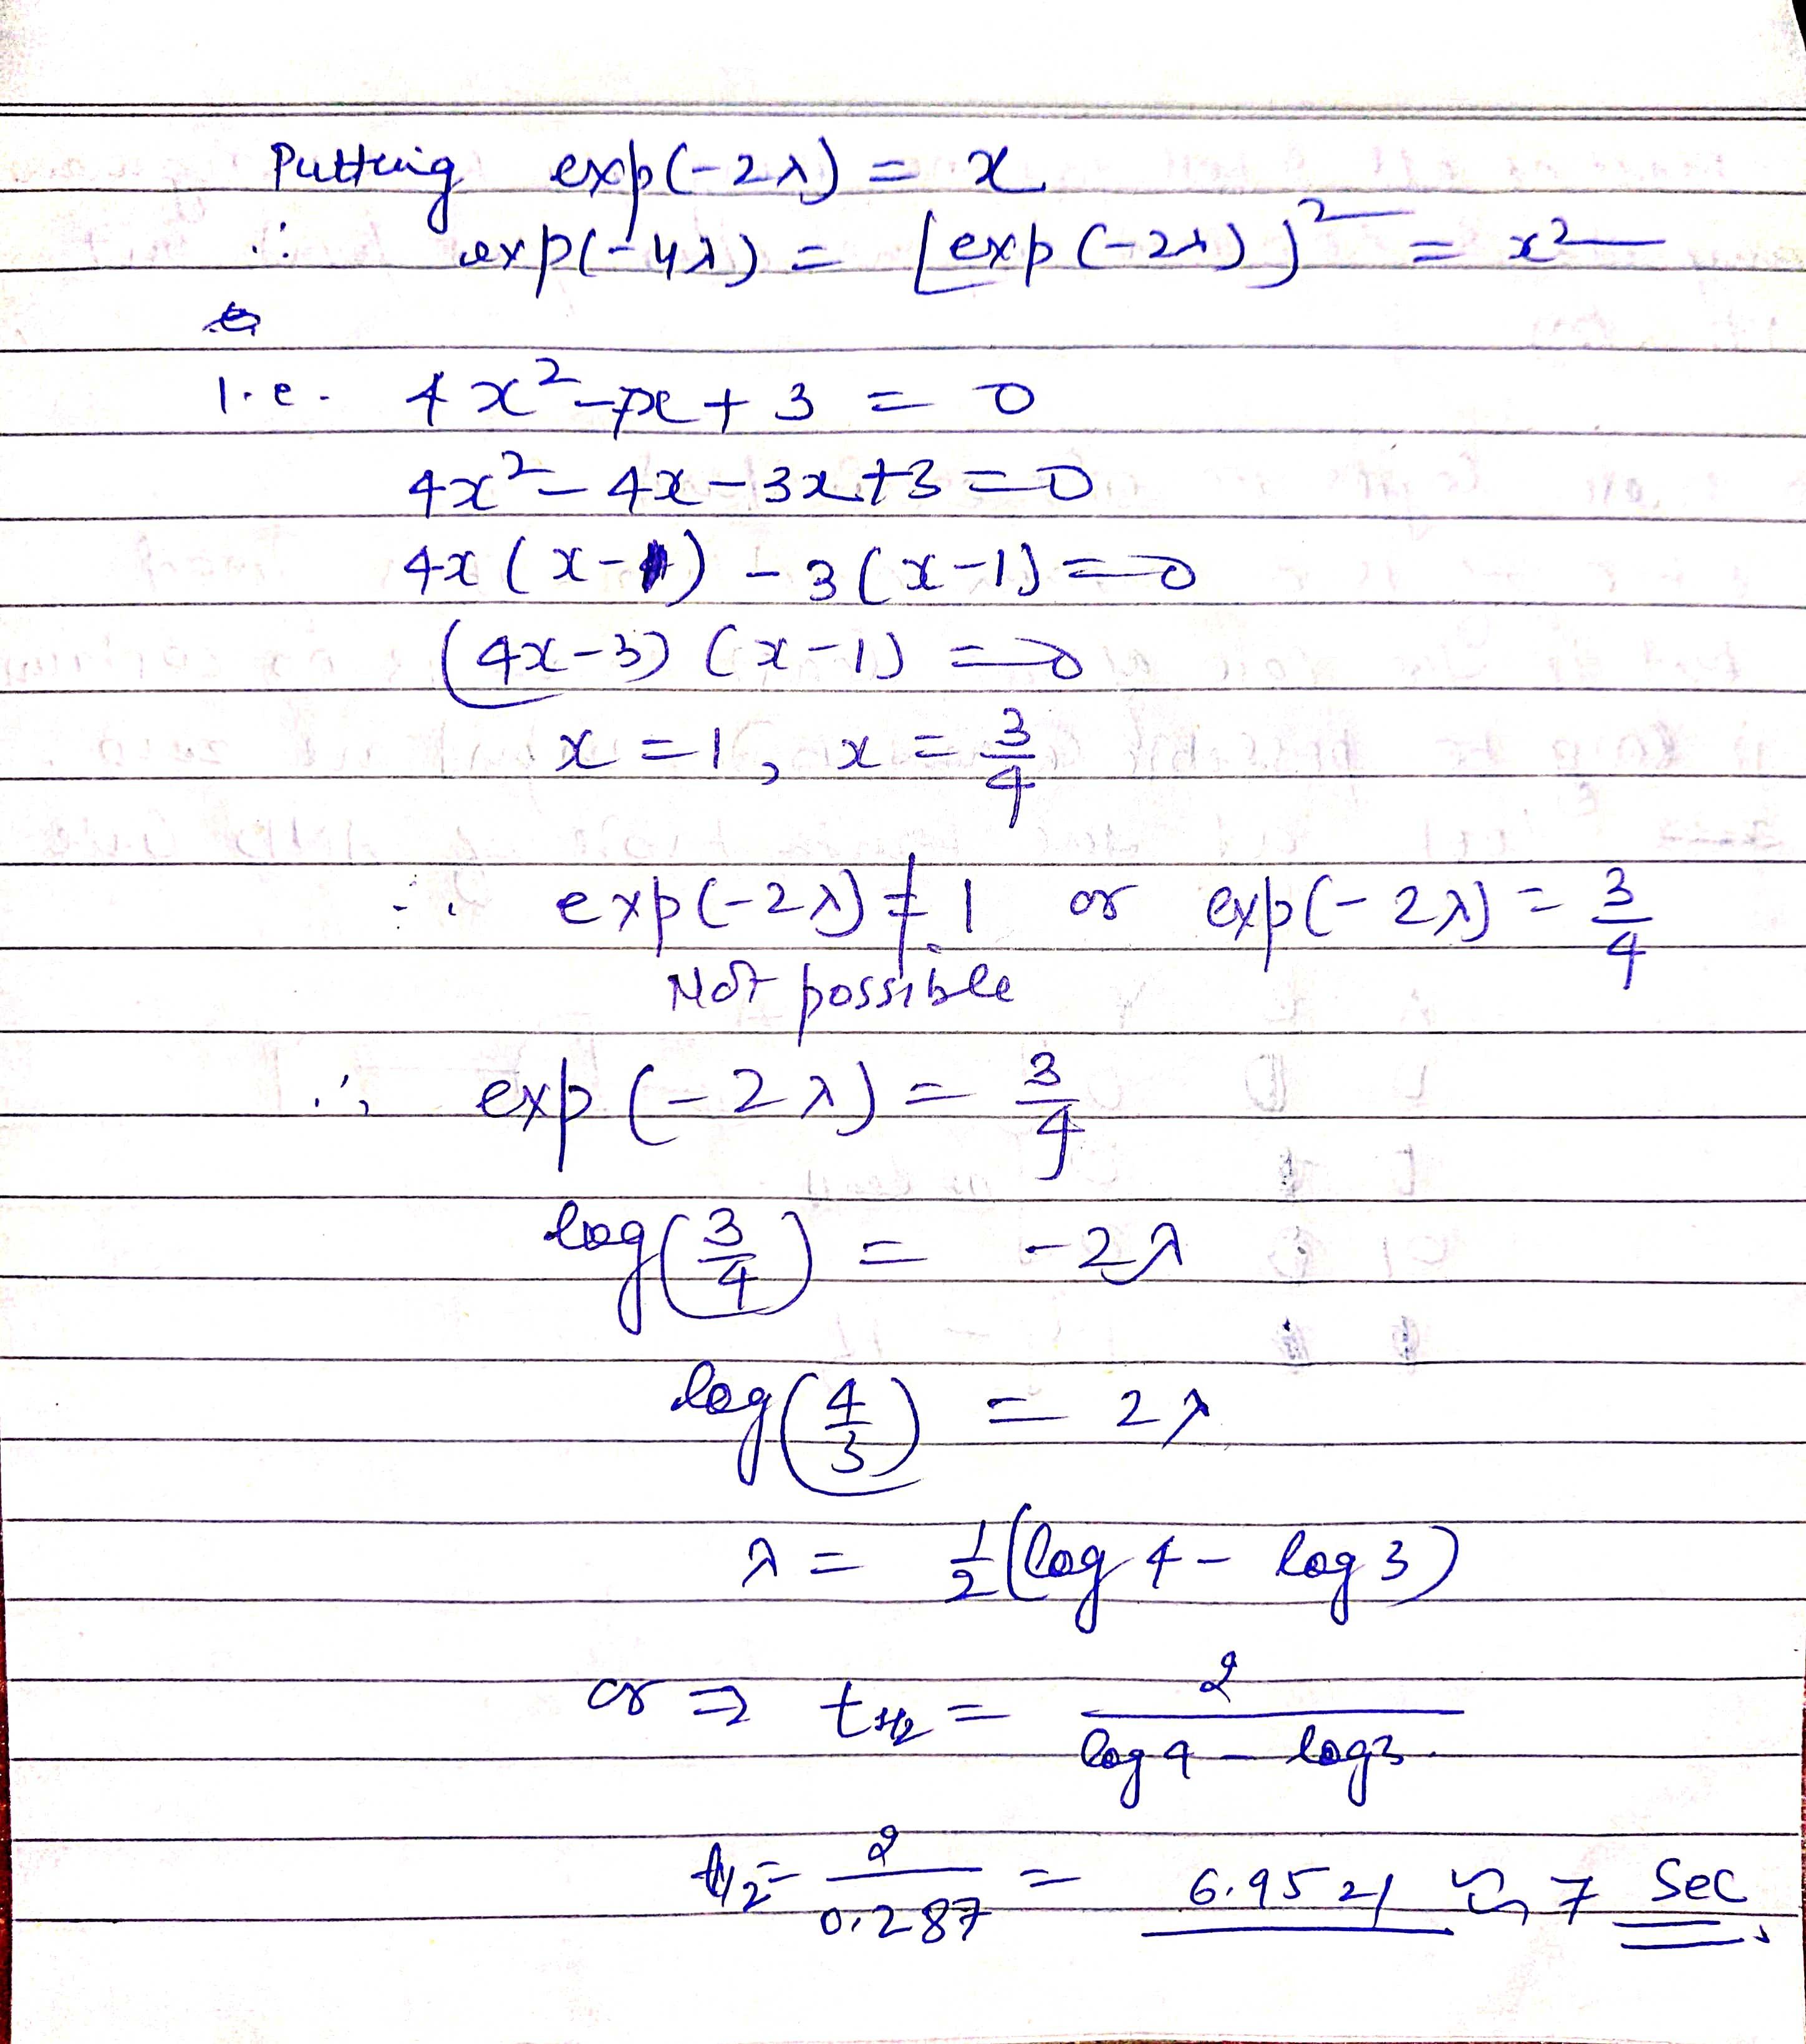 Putting exp(-2λ) = x
∴ exp(-4λ) = [exp(-2λ)]² = x²
i.e. 4x² - 7x + 3 = 0
4x² - 4x - 3x + 3 = 0
4x(x-1) - 3(x-1) = 0
(4x-3)(x-1) = 0
x = 1, x = 3/4
∴ exp(-2λ) ≠ 1 or exp(-2λ) = 3/4
Not possible
∴ exp(-2λ) = 3/4
log(3/4) = -2λ
log(4/3) = 2λ
λ = 1/2(log 4 - log 3)
or ⇒ t1/2 = 2/(log 4 - log 3)
t1/2 = 2/0.287 = 6.9521 ≈ 7 Sec